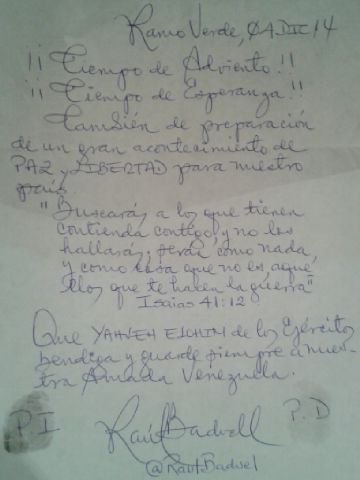 Ramo Verde, 0ADIC14
¡¡ Tiempo de Adviento!!
¡¡ Tiempo de Esperanza!!
También de preparación
de un gran acontecimiento de
PAZ y LIBERTAD para nuestro
país.
"Buscarás a los que tienen
contienda contigo y no los
hallarás; serán como nada,
y como cosa que no es, aque
llos que te hacen la guerra"
Isaías 41:12
Que YAHVEH ELOHIM de los Ejércitos
bendiga y guarde siempre a nues-
tra Amada Venezuela.
P.I Raúl Baduell P.D
@RaulBaduel